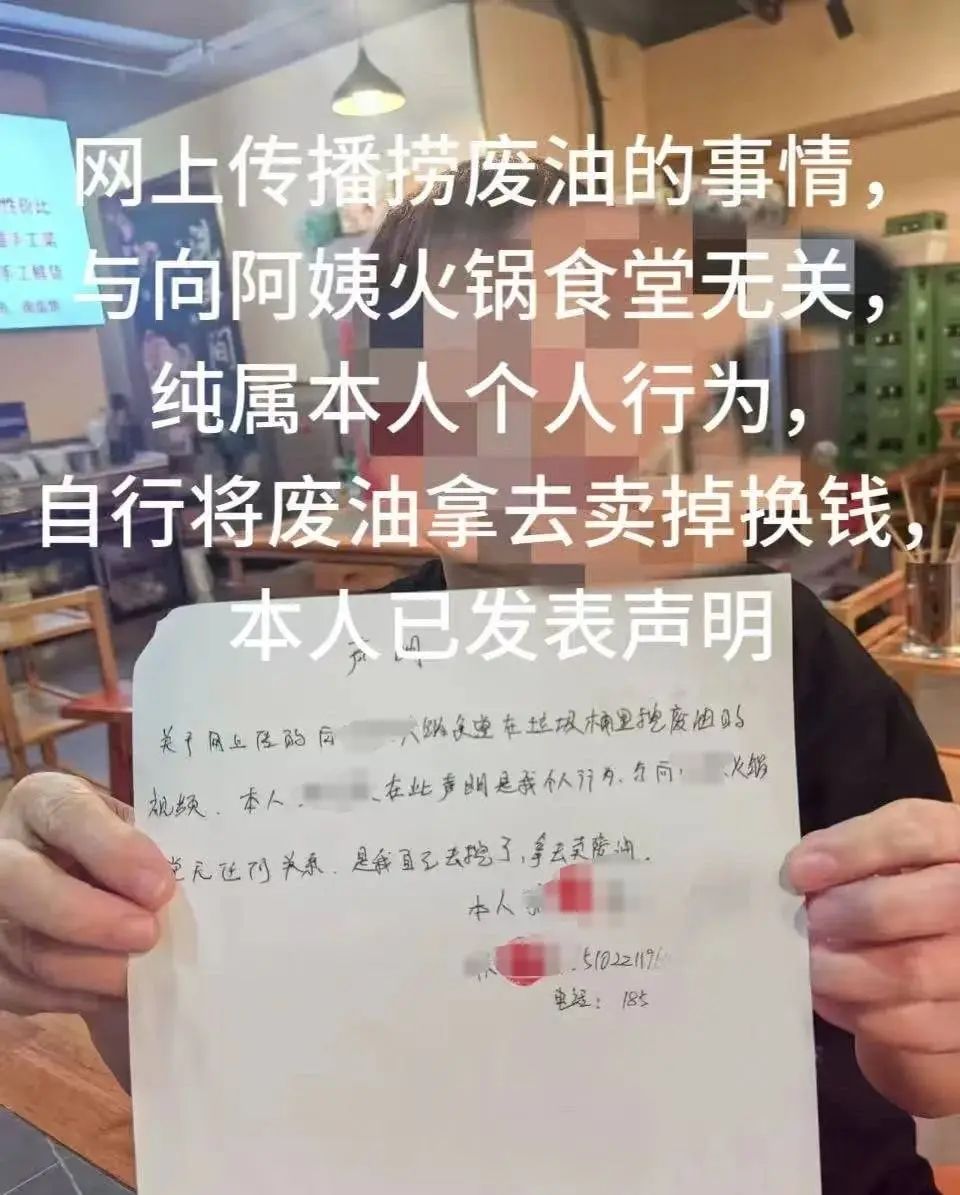 性价比
手工菜
网上传播捞废油的事情，
与向阿姨火锅食堂无关，
纯属本人个人行为，
自行将废油拿去卖掉换钱，
本人已发表声明
声明
关于网上传的向 火锅食堂在垃圾桶里捞废油的
视频. 本人 在此声明是我个人行为. 与向 火锅
无任何关系. 是我自己去捞了, 拿去卖废油.
本人
510221196
电话: 185